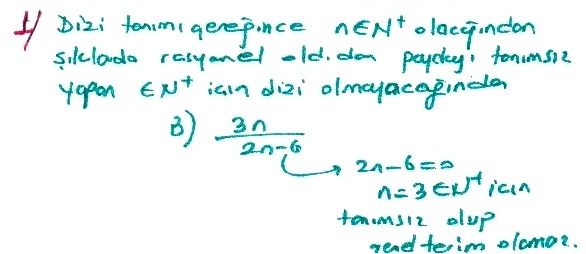 1/ Dizi tanımı gereğince n∈N⁺ olacağından
şıklarda rasyonel old.dan paydayı tanımsız
yapan ∈N⁺ için dizi olmayacağından
B) 3n / 2n-6
→ 2n-6=0
n=3 ∈N⁺ için
tanımsız olup
genel terim olamaz.